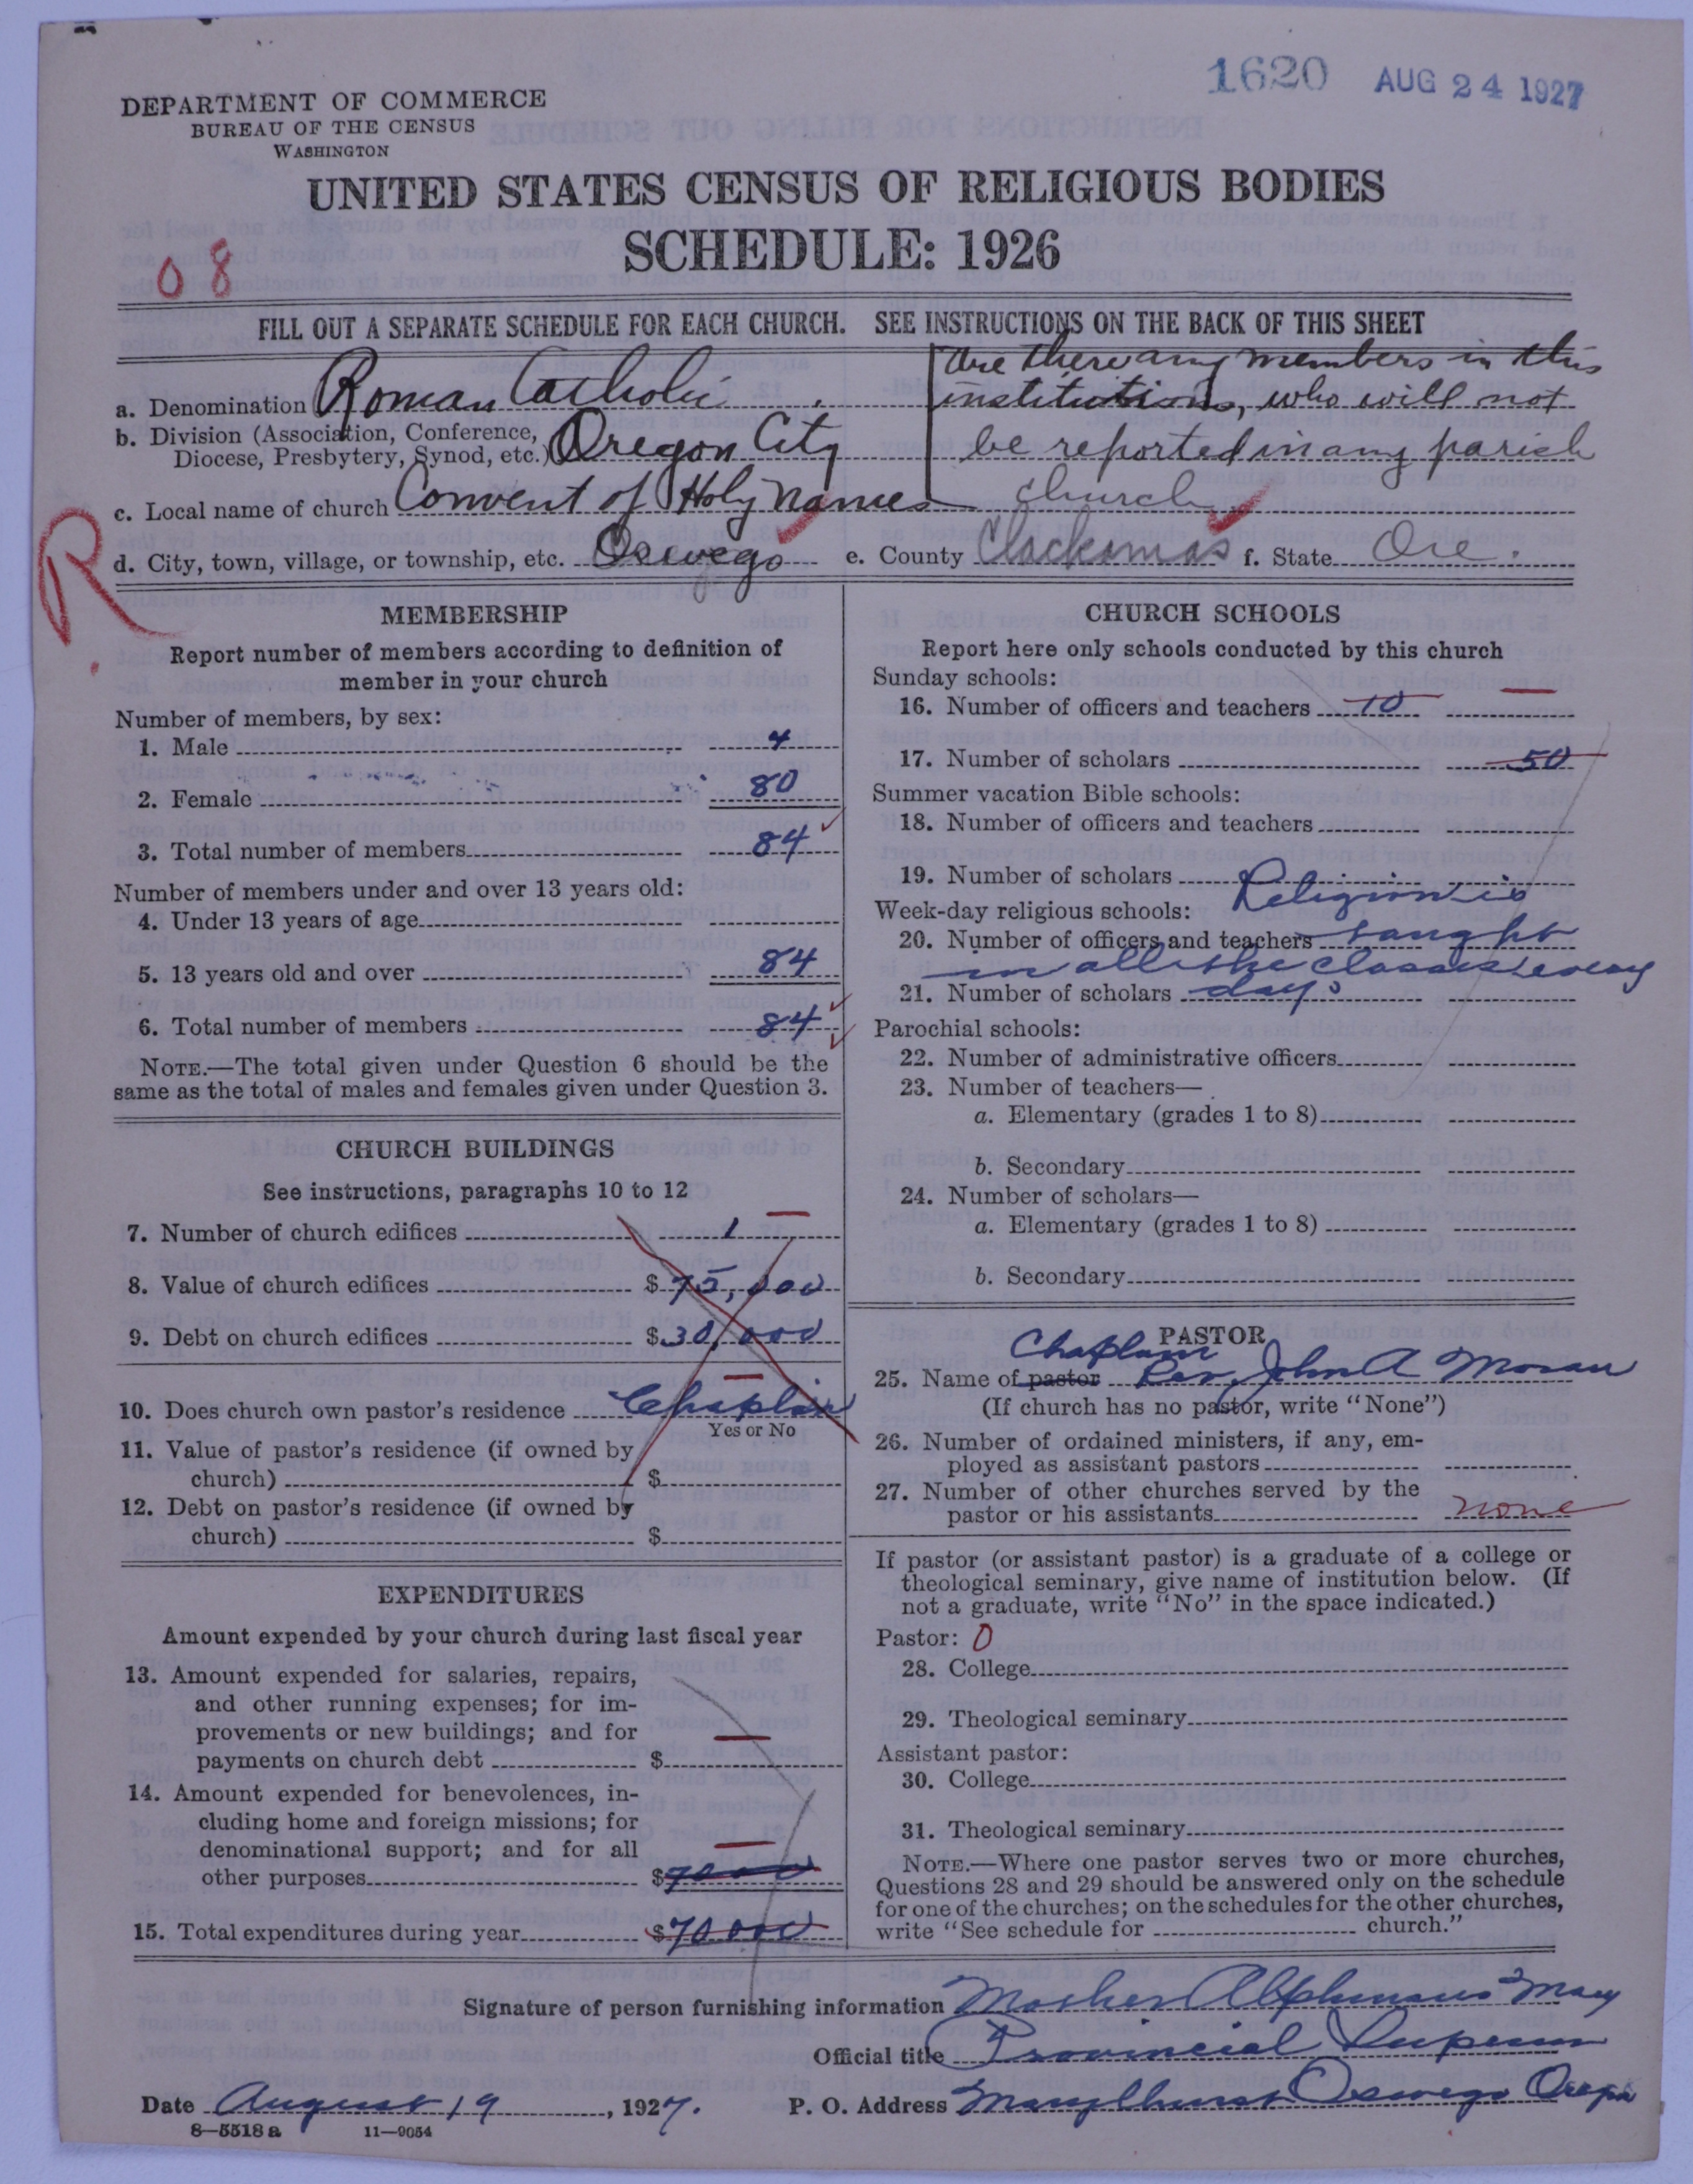 1620 AUG 24 1927
DEPARTMENT OF COMMERCE
BUREAU OF THE CENSUS
WASHINGTON
UNITED STATES CENSUS OF RELIGIOUS BODIES
SCHEDULE: 1926
08
FILL OUT A SEPARATE SCHEDULE FOR EACH CHURCH. SEE INSTRUCTIONS ON THE BACK OF THIS SHEET
Are there any members in this
institutions, who will not
be reported in any parish
church
a. Denomination Roman Catholic
b. Division (Association, Conference,
Diocese, Presbytery, Synod, etc.) Oregon City
c. Local name of church Convent of Holy Names
R
d. City, town, village, or township, etc. Oswego e. County Clackamas f. State Ore.
MEMBERSHIP
Report number of members according to definition of
member in your church
Number of members, by sex:
1. Male 4
2. Female 80
3. Total number of members 84
Number of members under and over 13 years old:
4. Under 13 years of age
5. 13 years old and over 84
6. Total number of members 84
NOTE.—The total given under Question 6 should be the
same as the total of males and females given under Question 3.
CHURCH BUILDINGS
See instructions, paragraphs 10 to 12
7. Number of church edifices 1
8. Value of church edifices $75,000
9. Debt on church edifices $30,000
10. Does church own pastor's residence Chaplin
Yes or No
11. Value of pastor's residence (if owned by
church) $
12. Debt on pastor's residence (if owned by
church) $
EXPENDITURES
Amount expended by your church during last fiscal year
13. Amount expended for salaries, repairs,
and other running expenses; for im-
provements or new buildings; and for
payments on church debt $
14. Amount expended for benevolences, in-
cluding home and foreign missions; for
denominational support; and for all
other purposes $
15. Total expenditures during year $70000
CHURCH SCHOOLS
Report here only schools conducted by this church
Sunday schools:
16. Number of officers and teachers 10
17. Number of scholars 50
Summer vacation Bible schools:
18. Number of officers and teachers
19. Number of scholars
Week-day religious schools: Religion is
20. Number of officers and teachers taught
in all the classes every
21. Number of scholars day.
Parochial schools:
22. Number of administrative officers
23. Number of teachers—
a. Elementary (grades 1 to 8)
b. Secondary
24. Number of scholars—
a. Elementary (grades 1 to 8)
b. Secondary
PASTOR
Chaplain
25. Name of pastor Rev. John A Moran
(If church has no pastor, write "None")
26. Number of ordained ministers, if any, em-
ployed as assistant pastors
27. Number of other churches served by the
pastor or his assistants none
If pastor (or assistant pastor) is a graduate of a college or
theological seminary, give name of institution below. (If
not a graduate, write "No" in the space indicated.)
Pastor: 0
28. College
29. Theological seminary
Assistant pastor:
30. College
31. Theological seminary
NOTE.—Where one pastor serves two or more churches,
Questions 28 and 29 should be answered only on the schedule
for one of the churches; on the schedules for the other churches,
write "See schedule for church."
Signature of person furnishing information Mother Alphonsus Mary
Official title Provincial Superior
Date August 19, 1927. P. O. Address Marylhurst Oswego Oregon
8—5518 a 11—9054